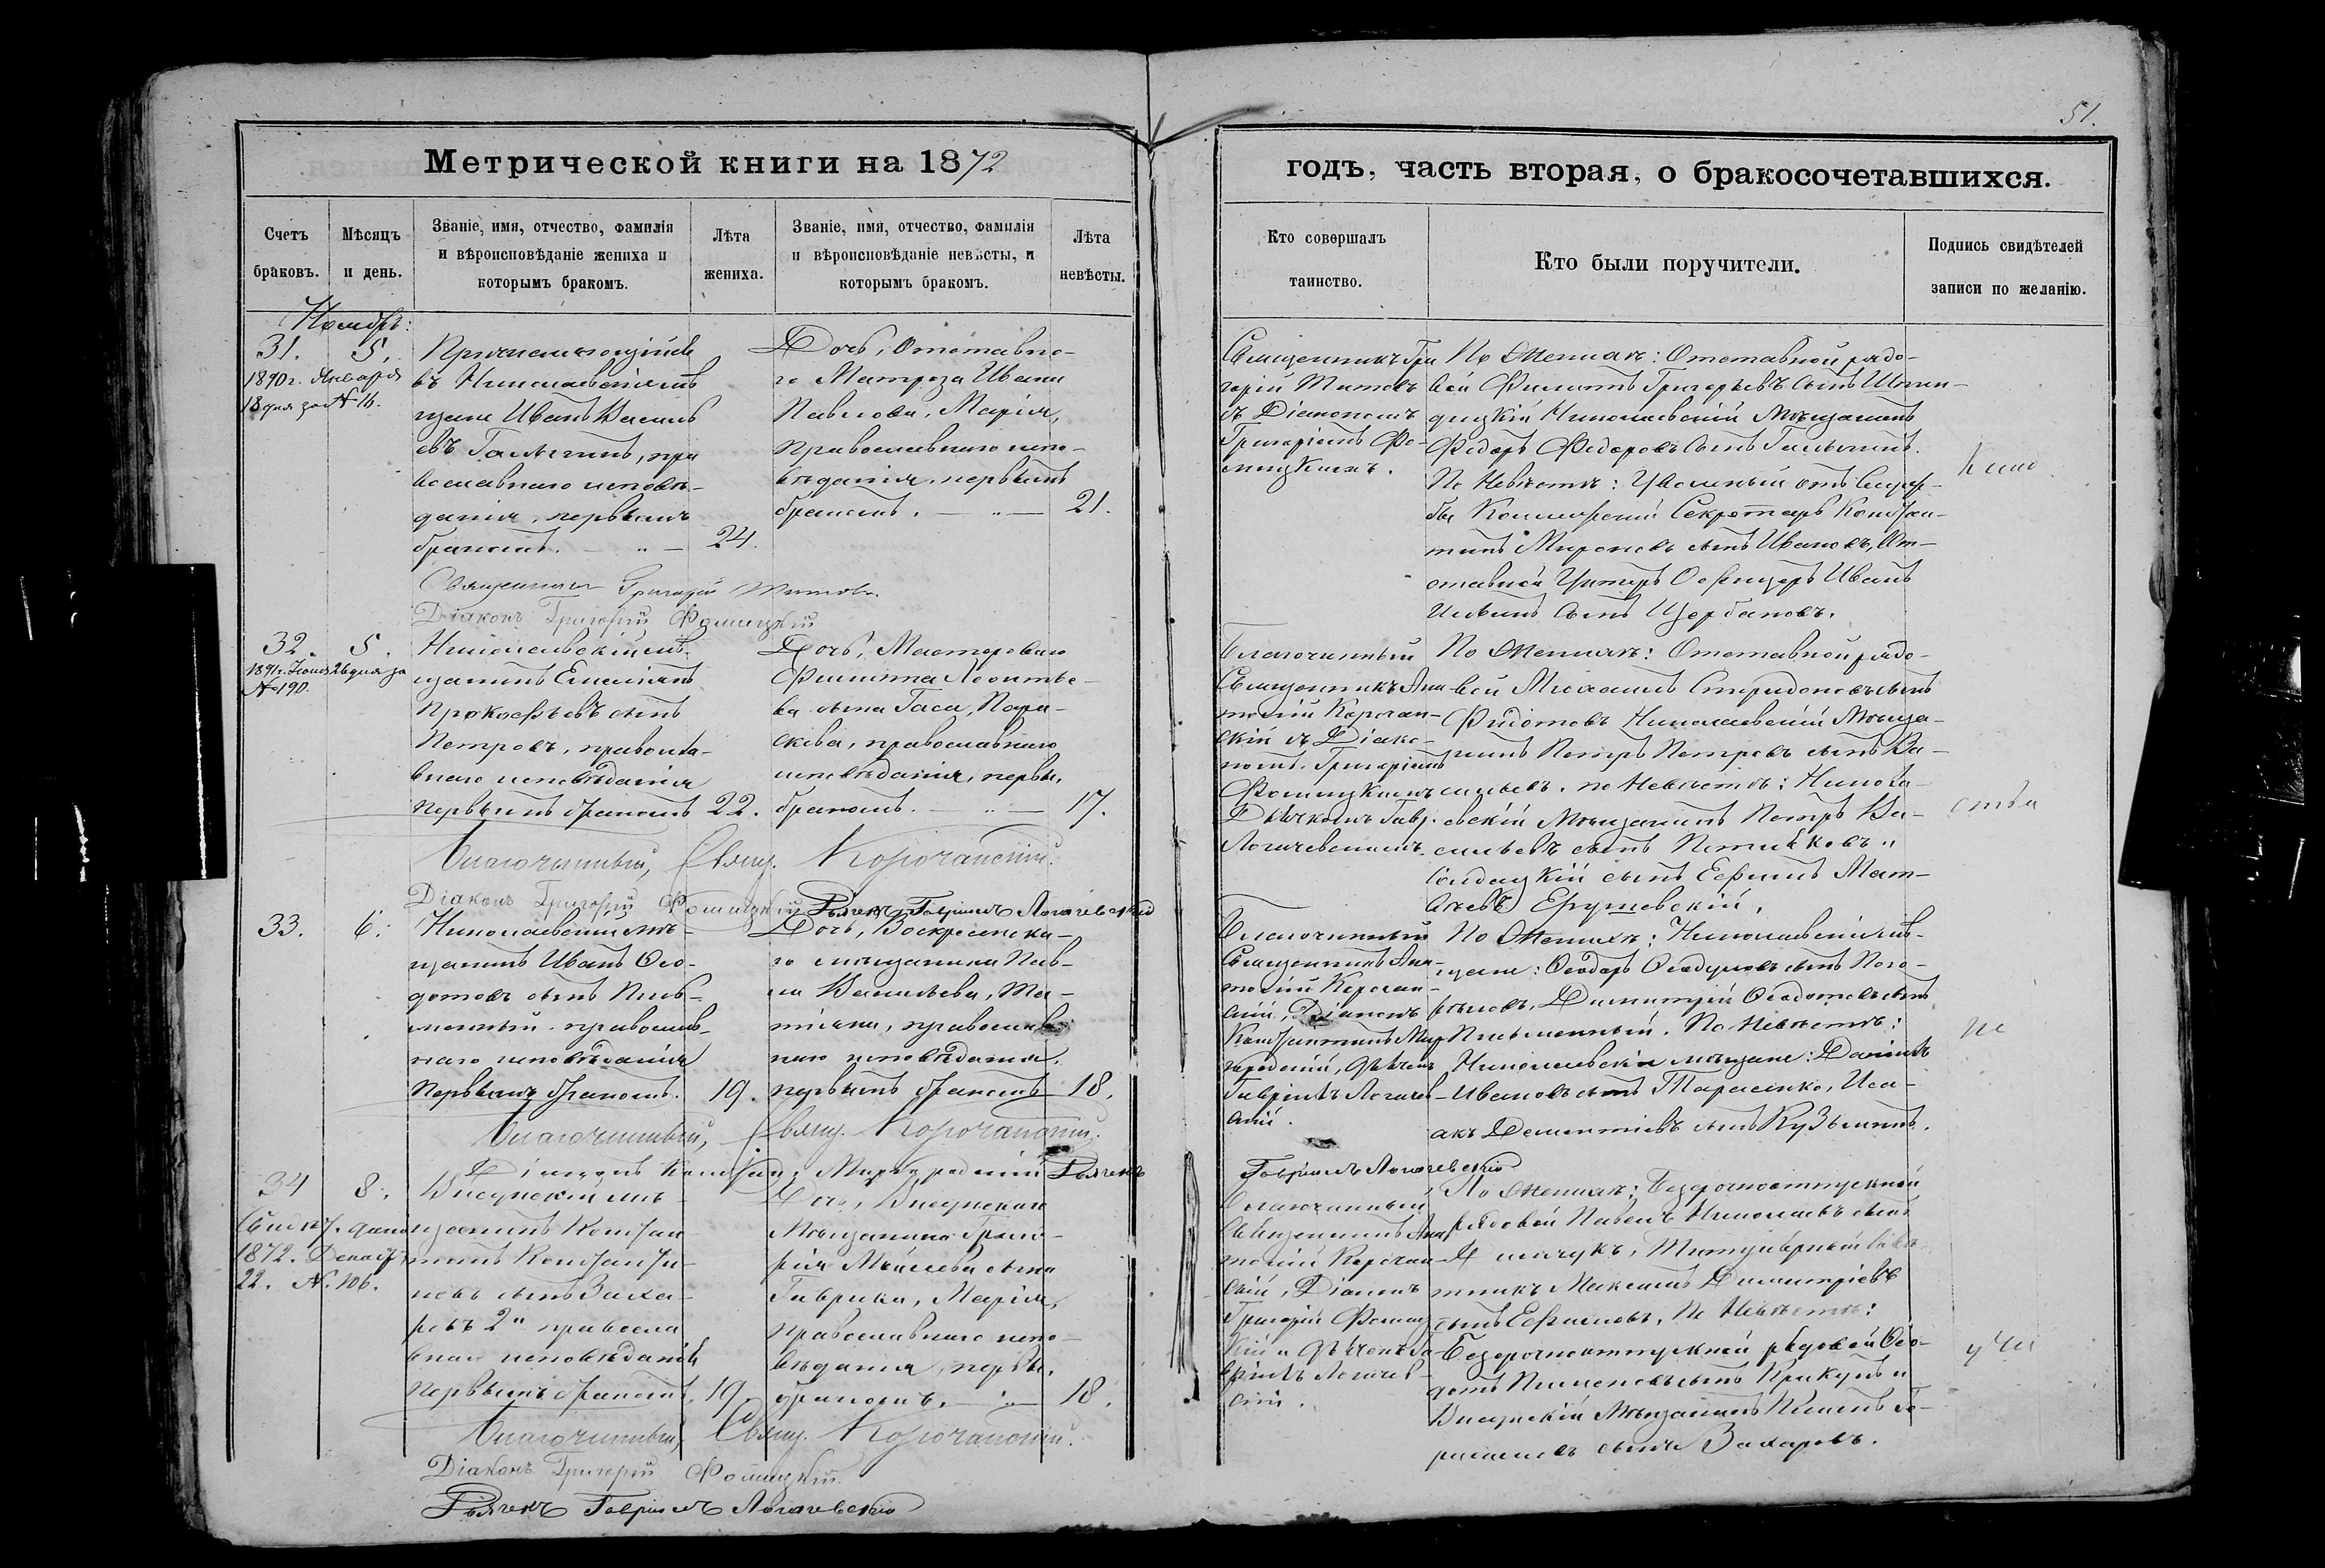 51.
Метрической книги на 1872
годъ, часть вторая, о бракосочетавшихся.
Счетъ браковъ.
Мѣсяцъ и день.
Званіе, имя, отчество, фамилія
и вѣроисповѣданіе жениха и
которымъ бракомъ.
Лѣта
жениха.
Званіе, имя, отчество, фамилія
и вѣроисповѣданіе невѣсты, и
которымъ бракомъ.
Лѣта
невѣсты.
Кто совершалъ
таинство.
Кто были поручители.
Подпись свидѣтелей
записи по желанію.
Ноябрь:
31. 5.
1890 г. Января
18 дня за № 16.
въ Николаевскіе мѣ
щане Иванъ Василь
евъ
вославнаго исповѣ-
данія, первымъ
бракомъ. 24.
Дочь, Отставно-
го Матроза Ивана
Павлова, Марія,
Православнаго испо-
вѣданія, первымъ
бракомъ. 21.
Священникъ Гри
горій Титовъ
съ Діакономъ
Григоріемъ Фо-
мицкимъ.
По Женихѣ: Отставной рядо-
вой Филиппъ Григорьевъ сынъ
Николаевскій Мѣщанинъ
Федоръ Федоровъ сынъ
По Невѣстѣ: Уволенный отъ Служ-
бы Коллежскій Секретарь Констан-
тинъ Мироновъ сынъ Ивановъ, От-
ставной Унтеръ Офицеръ Иванъ
Ильинъ сынъ Щербаковъ.
Священникъ Григорій Титовъ.
Діаконъ Григорій Фомицкій
32. 5.
1891 г. 26 дня за
№ 190.
Николаевскій мѣ-
щанинъ Емельянъ
Прокофьевъ сынъ
Петровъ, правосла-
внаго исповѣданія
первымъ бракомъ 22.
Дочь, Мастероваго
Филиппа Леонтье-
ва сына Гаса, Пара-
скева, православнаго
исповѣданія, первы.
бракомъ. 17.
Благочинный
Священникъ Ана
толій Корочан-
скій съ Діако-
номъ Григоріемъ
Фомицкимъ
Дьячкомъ Гавр.
Логачевскимъ.
По Женихѣ: Отставной рядо-
вой Михаилъ Спиридоновъ сынъ
Федотовъ Николаевскій Мѣща-
нинъ Петръ Петровъ сынъ Ва-
сильевъ. по Невѣстѣ: Никола-
евскій Мѣщанинъ Петръ Ва-
сильевъ сынъ Петиковъ и
Солдацкій сынъ Ефимъ Мат-
вѣевъ Ерушевскій.
Благочинный, Свящ. Корочанскій.
Діаконъ Григорій Фомицкій Дьячекъ Гавріилъ Логачевскій
33. 6.
Николаевскій мѣ-
щанинъ Иванъ Фео-
дотовъ сынъ Пись-
менный, православ-
наго исповѣданія
первымъ бракомъ. 19.
Дочь, Воскресенска-
го мѣщанина Пав-
ла Васильева, Та-
тіана, православ-
наго исповѣданія.
первымъ бракомъ 18.
Благочинный
Священникъ Ана-
толій Корочан-
скій, Діаконъ
Константинъ Мир
городскій, дьячекъ
Гавріилъ Логачев-
скій.
По Женихѣ: Николаевскіе мѣ-
щане: Феодоръ сынъ
Димитрій Феодотовъ сынъ
Письменный. По Невѣстѣ:
Николаевскіе мѣщане: Даніилъ
Ивановъ сынъ Тарасенко, Иса-
акъ Дементіевъ сынъ Кузьминъ.
Благочинный, Свящ. Корочанскій.
Діаконъ Констан. Миргородскій Дьячекъ
Гавріилъ Логачевскій
34 8.
1872. Декабр.
22. № 106.
Висунскій мѣ-
щанинъ Констан
тинъ Константи-
новъ сынъ Заха-
ровъ 2й правосла
внаго исповѣданія
первымъ бракомъ. 19.
Дочь, Висунскаго
Мѣщанина Григо-
рія Моисеева сына
Гаврика, Марія,
православнаго испо-
вѣданія, первы.
бракомъ. 18.
Благочинный
Священникъ Ана
толій Корочан-
скій, Діаконъ
Григорій Фомиц
кій и дьячекъ Га-
вріилъ Логачев-
скій.
По Женихѣ: Безсрочноотпускной
рядовой Павелъ Николаевъ сынъ
Титулярный Совѣ-
тникъ Максимъ Димитріевъ
сынъ Ефимовъ, По Невѣстѣ:
Безсрочноотпускной рядовой Фео-
дотъ Пименовъ сынъ Крикунъ и
Висунскій Мѣщанинъ
сынъ Захаровъ.
Благочинный, Свящ. Корочанскій.
Діаконъ Григорій Фомицкій.
Дьячекъ Гавріилъ Логачевскій